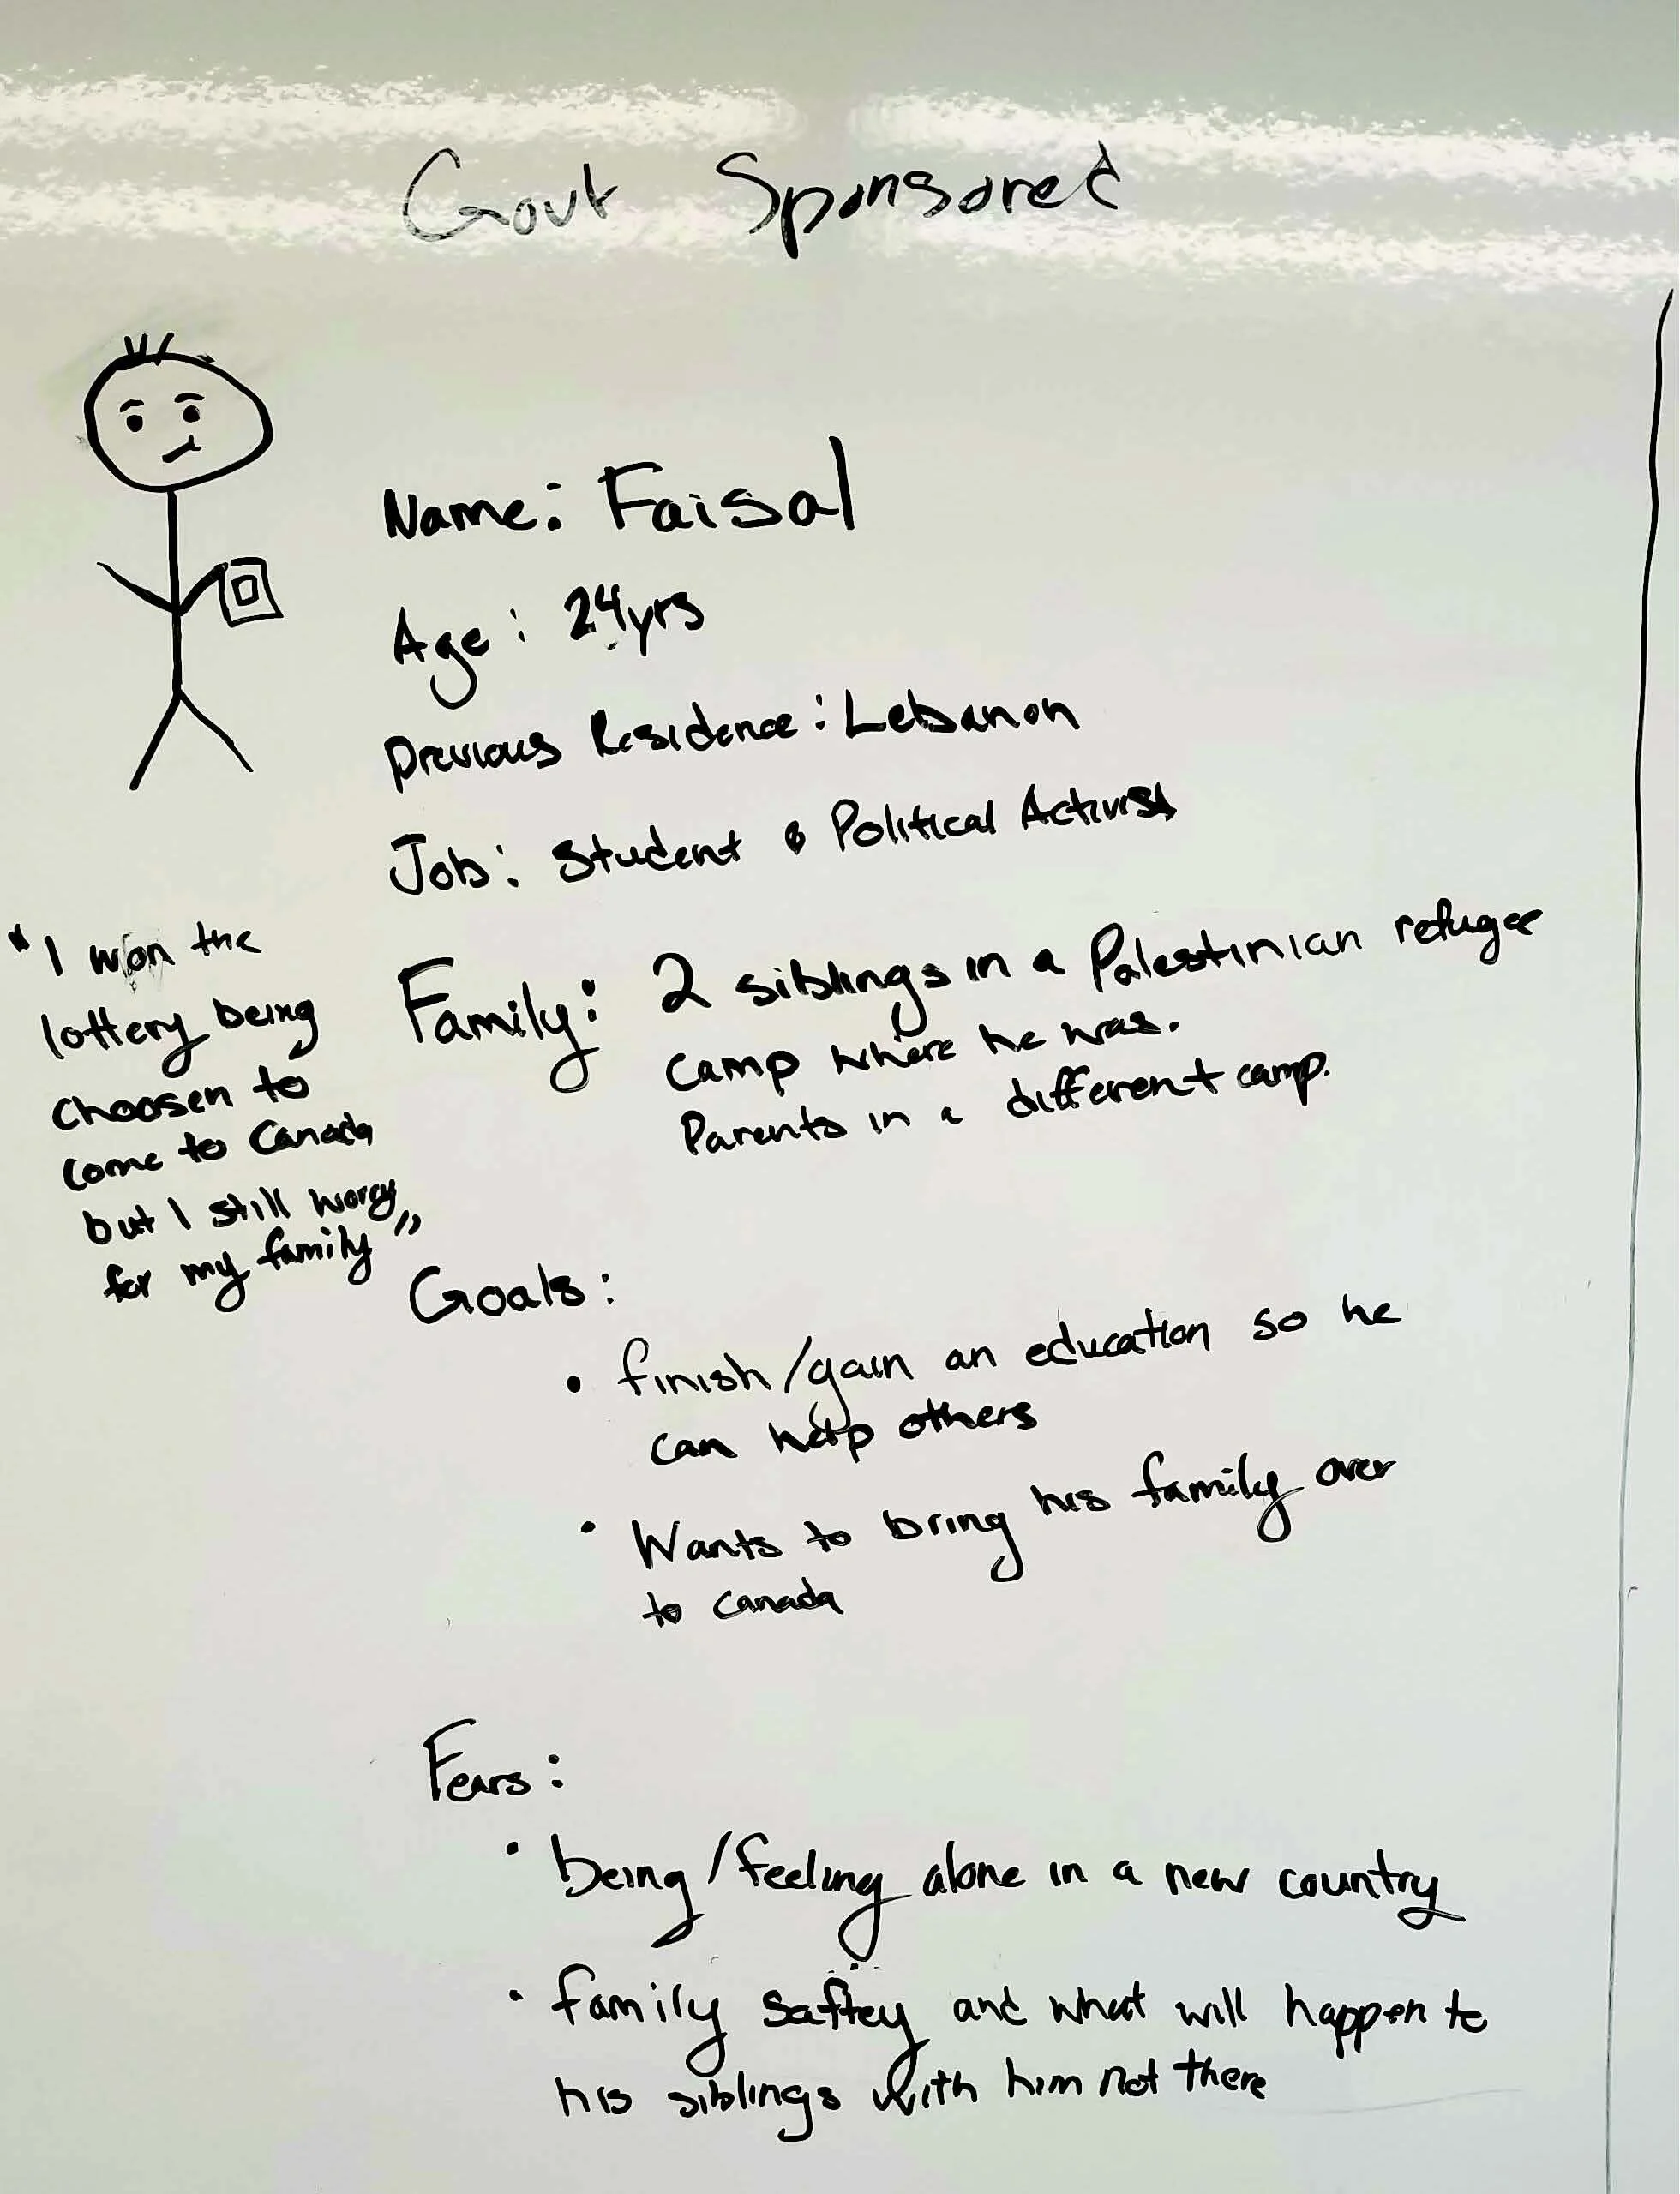 Govt Sponsored
Name: Faisal
Age: 24yrs
Previous Residence: Lebanon
Job: Student & Political Activist
"I won the
lottery being
choosen to
come to Canada
but I still worry
for my family"
Family: 2 siblings in a Palestinian refugee
camp where he was.
Parents in a different camp.
Goals:
• finish/gain an education so he
can help others
• Wants to bring his family over
to Canada
Fears:
• being/feeling alone in a new country
• family saftey and what will happen to
his siblings with him not there